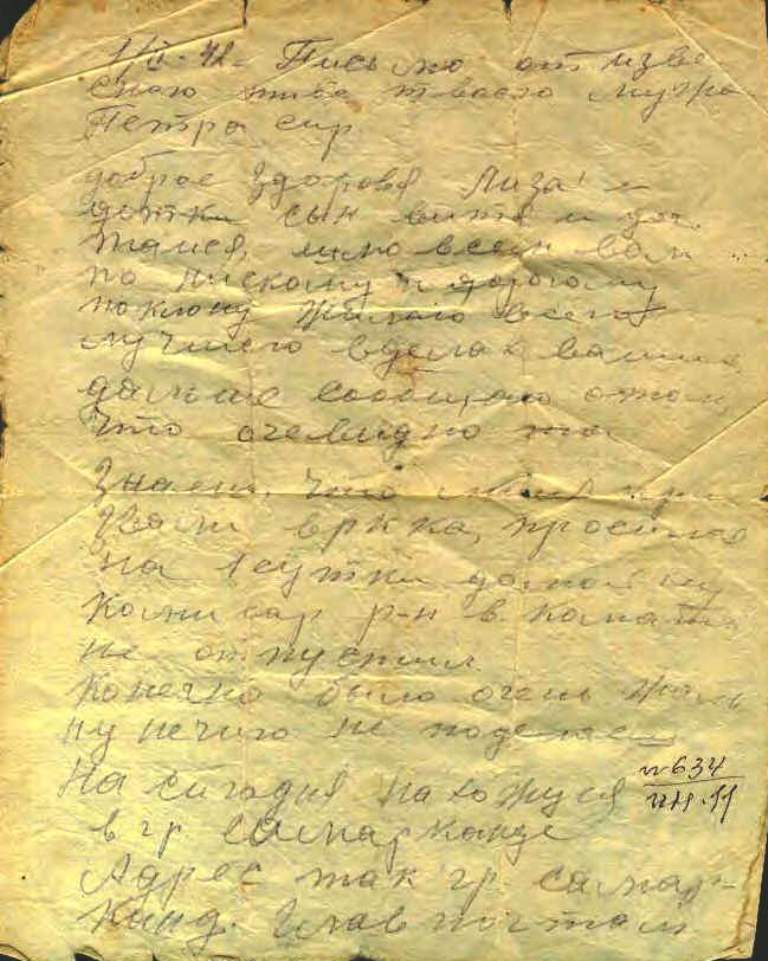 1/II-42 Письмо от изве
сного тибе твоего мужа
Петра сир
доброе Здоровя Лиза! и
детки сын витя и доч.
шлю всем вам
по нискому и дорогому
поклону Желаю всего
лучшего вделах ваших
дальше сообщаю отом
что очевидно ты
Знаеш, что меня при
звали вркка, просился
на 1 сутки домой ну
комисар р-н в.комата
не отпустил
конечно было очень жаль
ну нечиго не поделаеш
На сигодня нахожуся
в гр самарканде
Адрес так гр. самар-
канд. Глав почтам
№634